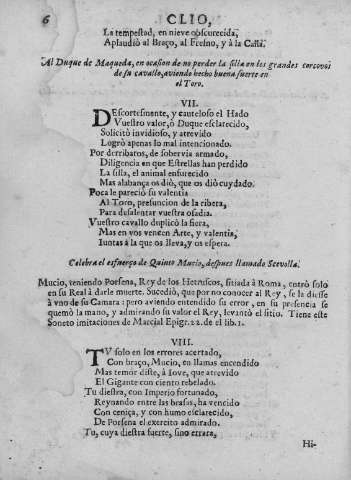 6 CLIO,
La tempestad, en nieve obscurecida,
Aplaudiò al Braço, al Fresno, y à la Casta.
Al Duque de Maqueda, en ocasion de no perder la silla en los grandes corcovos
de su cavallo, aviendo hecho buena suerte en
el Toro.
VII.
DEscortesmente, y cauteloso el Hado
Vuestro valor, ò Duque esclarecido,
Solicitò invidioso, y atrevido
Logrò apenas lo mal intencionado.
Por derribaros, de sobervia armado,
Diligencia en que Estrellas han perdido
La silla, el animal enfurecido
Mas alabança os diò, que os diò cuydado.
Poca le pareciò su valentia
Al Toro, presuncion de la ribera,
Para desalentar vuestra osadia.
Vuestro cavallo duplicò la fiera,
Mas en vos vencen Arte, y valentia,
Iuntas à la que os lleva, y os espera.
Celebra el esfuerço de Quinto Mucio, despues llamado Scevolla.
Mucio, teniendo Porsena, Rey de los Hetruscos, sitiada à Roma, entrò solo
en su Real à darle muerte. Sucediò, que por no conocer al Rey, se la diesse
à vno de su Camara: pero aviendo entendido su error, en su presencia se
quemò la mano, y admirando su valor el Rey, levantò el sitio. Tiene este
Soneto imitaciones de Marcial Epigr. 22. de el lib. 1.
VIII.
TV solo en los errores acertado,
Con braço, Mucio, en llamas encendido
Mas temor diste, à Iove, que atrevido
El Gigante con ciento rebelado.
Tu diestra, con Imperio fortunado,
Reynando entre las brasas, ha vencido
Con ceniça, y con humo esclarecido,
De Porsena el exercito admirado.
Tu, cuya diestra fuerte, sino errara,
Hi-